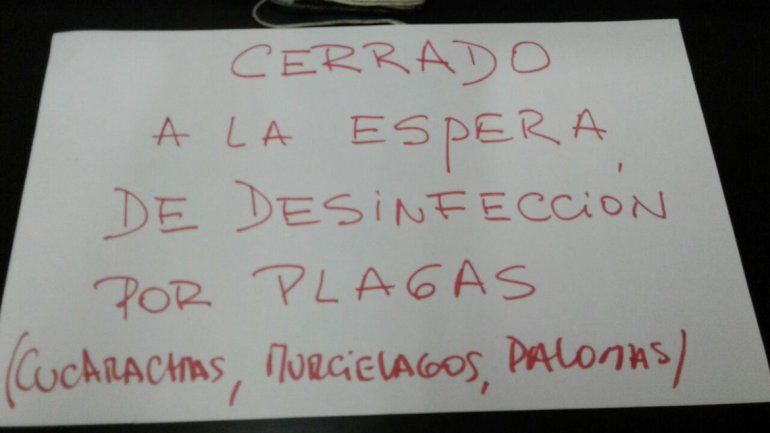 CERRADO
A LA ESPERA
DE DESINFECCIÓN
POR PLAGAS
(CUCARACHAS, MURCIELAGOS, PALOMAS)